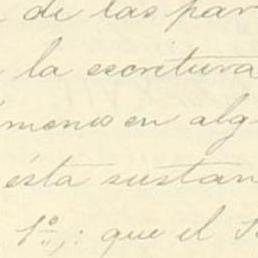 de las par
la escritura
ménos en alg
ésta sustan
1º; : que el